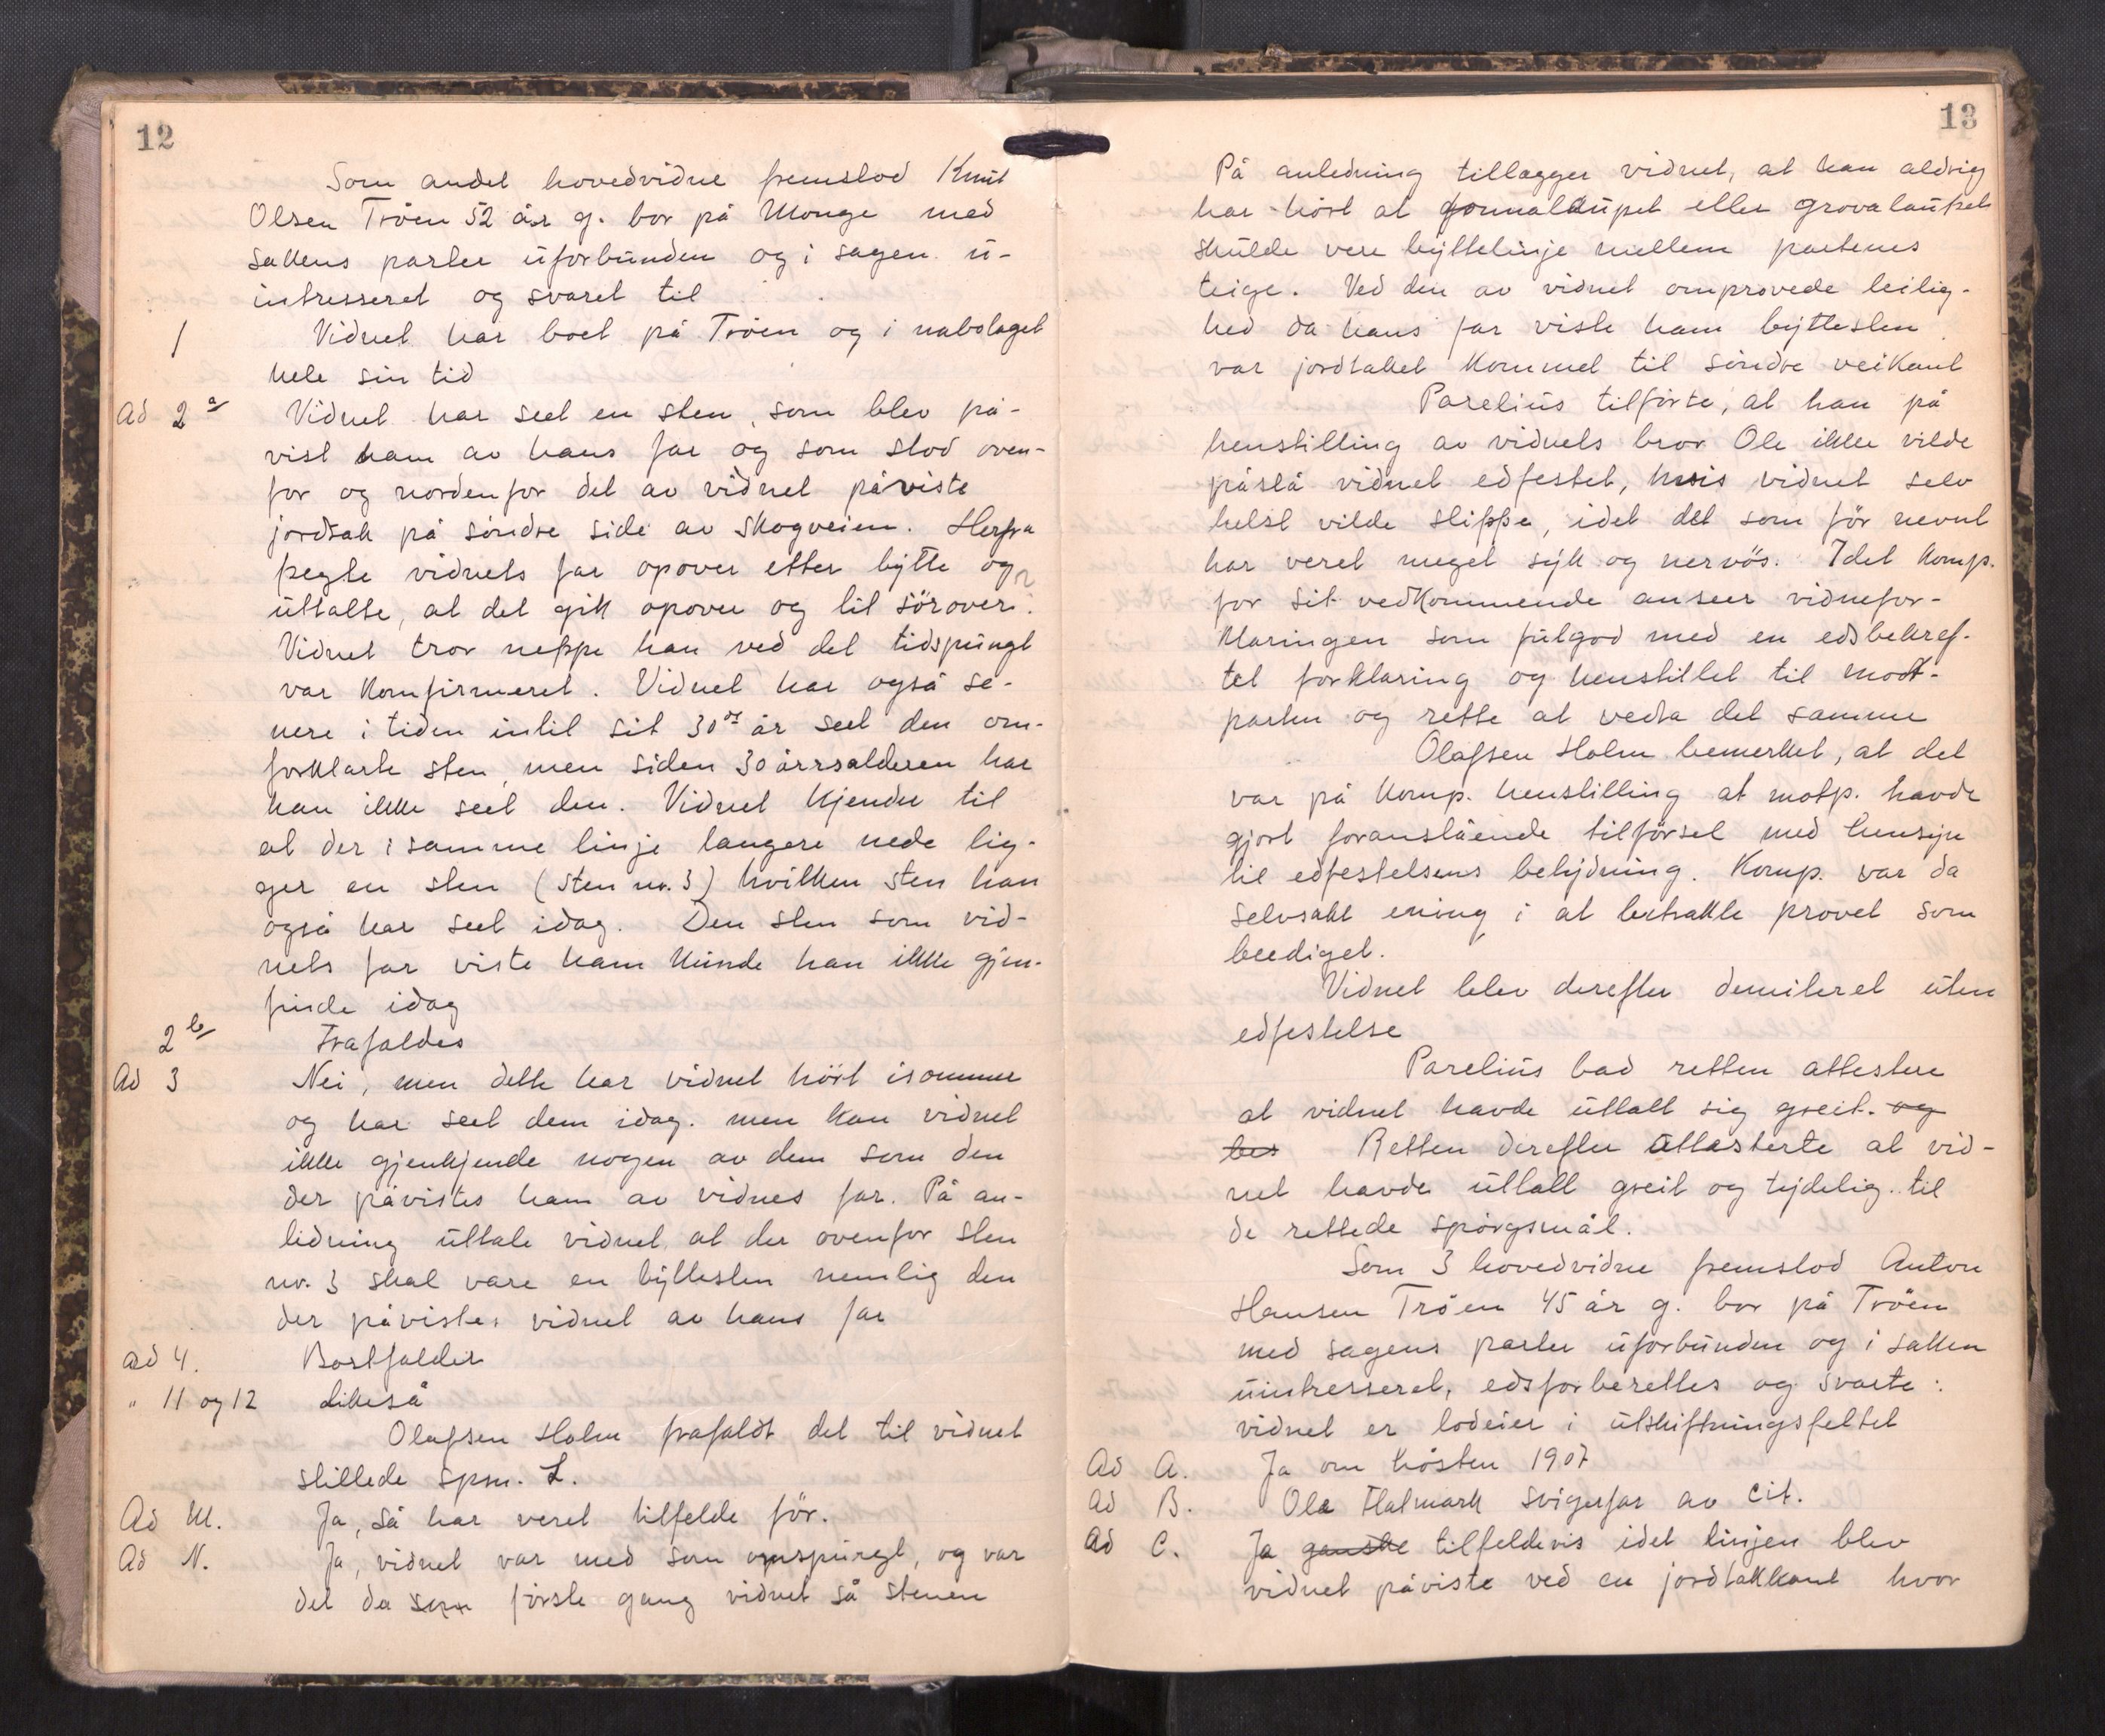 12
Som andet hovedvidne fremstod Knut
Olsen Tröen 52 år g. bor på Monge med
sakens parter uforbunden og i sagen u-
intresseret og svaret til
1 Vidnet har boet på Tröen og i nabolaget
hele sin tid
Ad 2 a/ Vidnet har seet en sten, som blev på-
vist ham av hans far og som stod oven-
for og nordenfor det av vidnet påviste
jordtak på söndre side av Skogveien. Herfra
pegte vidnets far opover etter bytte og
uttalte, at det gik opover og lit söröver.
Vidnet tror neppe han ved det tidspungt
var konfirmeret. Vidnet har også se-
nere i tiden intil sit 30 år seet den om-
forklarte sten, men siden 30 årrsalderen har
han ikke seet den. Vidnet kjender til
at der i samme linje langere nede lig-
ger en sten (sten nr. 3) hvilken sten han
også har seet idag. Den sten som vid-
nets far viste ham kunde han ikke gjen-
finde idag
2 b/ Frafaldes
Ad 3 Nei, men dette har vidnet hört isommer
og har seet dem idag. men kan vidnet
ikke gjenkjende nogen av dem som den
der påvistes ham av vidnes far. På an-
ledning uttale vidnet at der ovenfor sten
nr. 3 skal være en byttesten nemlig den
der påvistes vidnet av hans far
ad 4. Bortfalder
" 11 og 12 likeså
Olafsen Holm frafaldt det til vidnet
stillede spm. L.
Ad M. Ja, så har veret tilfelde för.
Ad N. Ja, vidnet var med som omspurgt, og var
det da som förste gang vidnet så stenen
13
På anledning tillægger vidnet, at han aldrig
har hört at eller grovalaupet
skulde vere byttelinje mellem partenes
teige. Ved den av vidnet omprovede leilig-
hed da hans far viste ham byttesten
var jordtaket kommet til söndre veikant
Parelius tilförte, at han på
henstilling av vidnets bror Ole ikke vilde
påstå vidnet edfestet, hvis vidnet selv
helst vilde slippe, idet det som för nevnt
har veret meget syk og nervös. Idet komp.
for sit vedkommende anseer vidnefor-
klaringen som fulgod med en edsbekref-
tet forklaring og henstillet til mot-
parten og rette at vedta det samme
Olafsen Holm bemerket, at det
var på komp. henstilling at motp. havde
gjort foranstående tilförsel med hensyn
til edfestelsens betydning. Komp. var da
selvsakt ening i at betrakte provet som
beediget.
Vidnet blev derefter demiteret uten
edfestelse
Parelius bad retten attestere
at vidnet havde uttalt sig greit. og
bes Retten derefter attasterte at vid-
net havde uttalt greit og tydelig til
de rettede spörgsmål.
Som 3 hovedvidne fremstod Anton
Hansen Tröen 45 år g. bor på Tröen
med sagens parter uforbunden og i sakken
uintresseret, edsforberettes og svarte:
vidnet er lodeier i utskiftningsfeltet
Ad A. Ja om hösten 1907
Ad B. Ola Halmark svigerfar av cit.
Ad C. Ja ganske tilfeldevis idet linjen blev
vidnet påviste ved en jordtakkant hvor